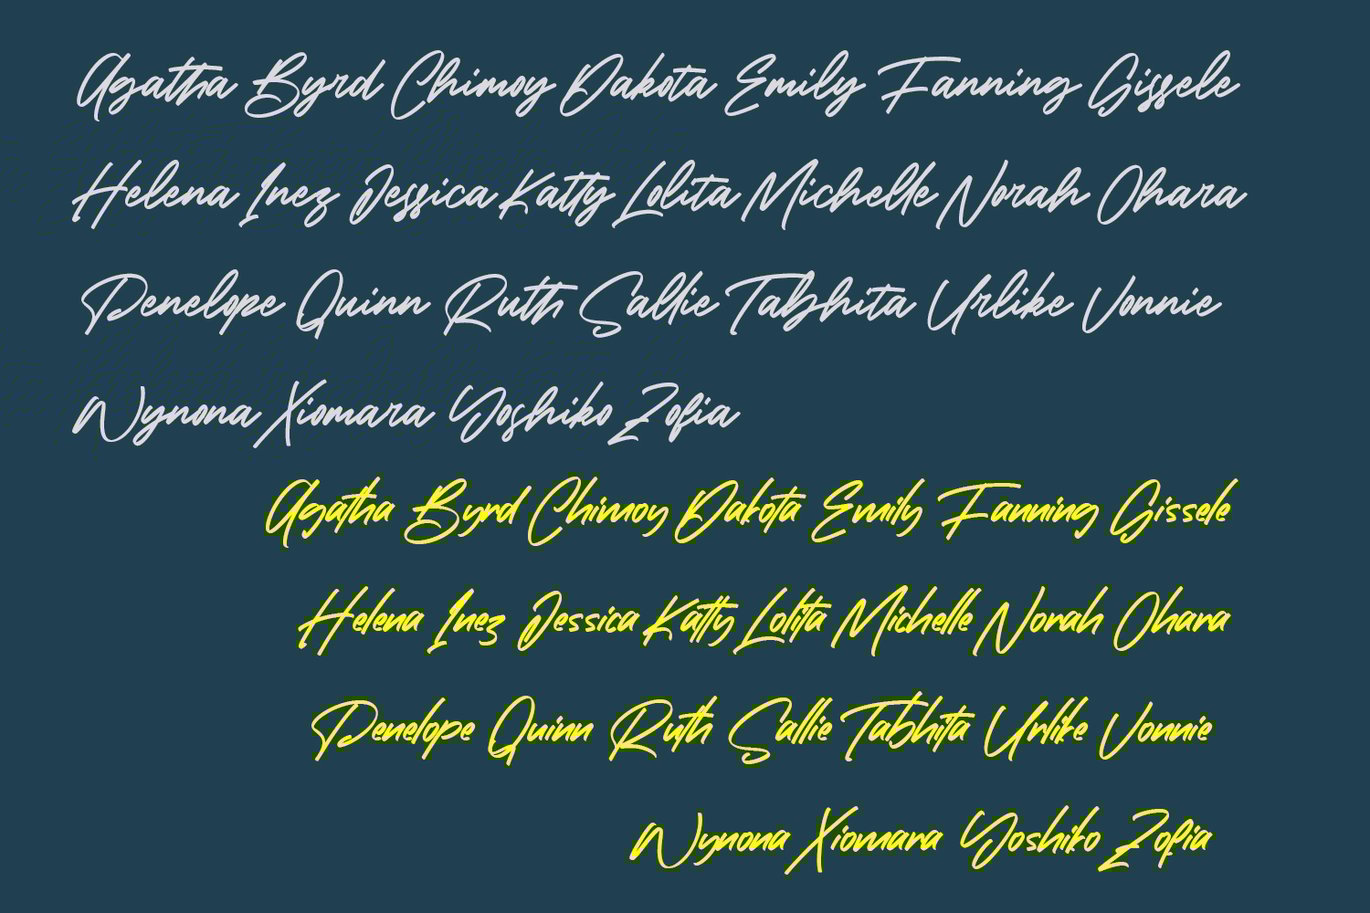 Agatha Byrd Chimoy Dakota Emily Fanning Gissele
Helena Inez Jessica Katty Lolita Michelle Norah Ohara
Penelope Quinn Ruth Sallie Tabhita Urlike Vonnie
Wynona Xiomara Yoshiko Zofia
Agatha Byrd Chimoy Dakota Emily Fanning Gissele
Helena Inez Jessica Katty Lolita Michelle Norah Ohara
Penelope Quinn Ruth Sallie Tabhita Urlike Vonnie
Wynona Xiomara Yoshiko Zofia